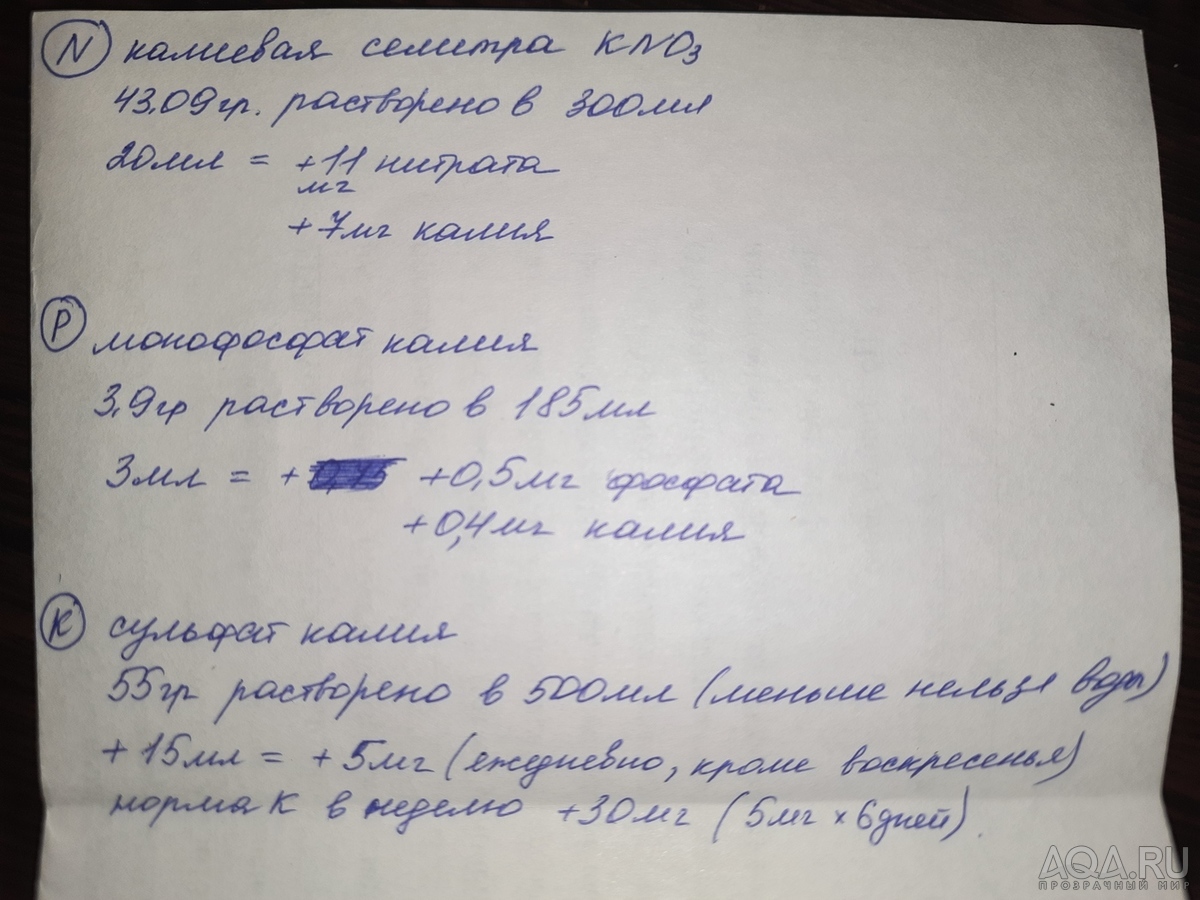 N калиевая селитра KNO3
43,09гр. растворено в 300мл
20мл = +11 нитрата
мг
+7мг калия
P монофосфат калия
3,9гр растворено в 185мл
3мл = + +0,5мг фосфата
+0,4мг калия
K сульфат калия
55гр растворено в 500мл (меньше нельзя воды)
+15мл = +5мг (ежедневно, кроме воскресенья)
норма K в неделю +30мг (5мг × 6 дней).
AQA.RU
ПРОЗРАЧНЫЙ МИР